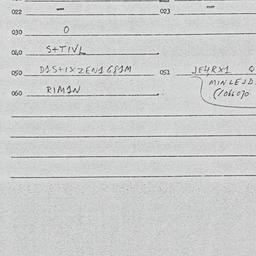 022 – 023 –
030 0
040 S+TIVL
050 D1S+IXZEN1G81M 051 JE4RX1 0
MINLEJD.
060 RIM1N